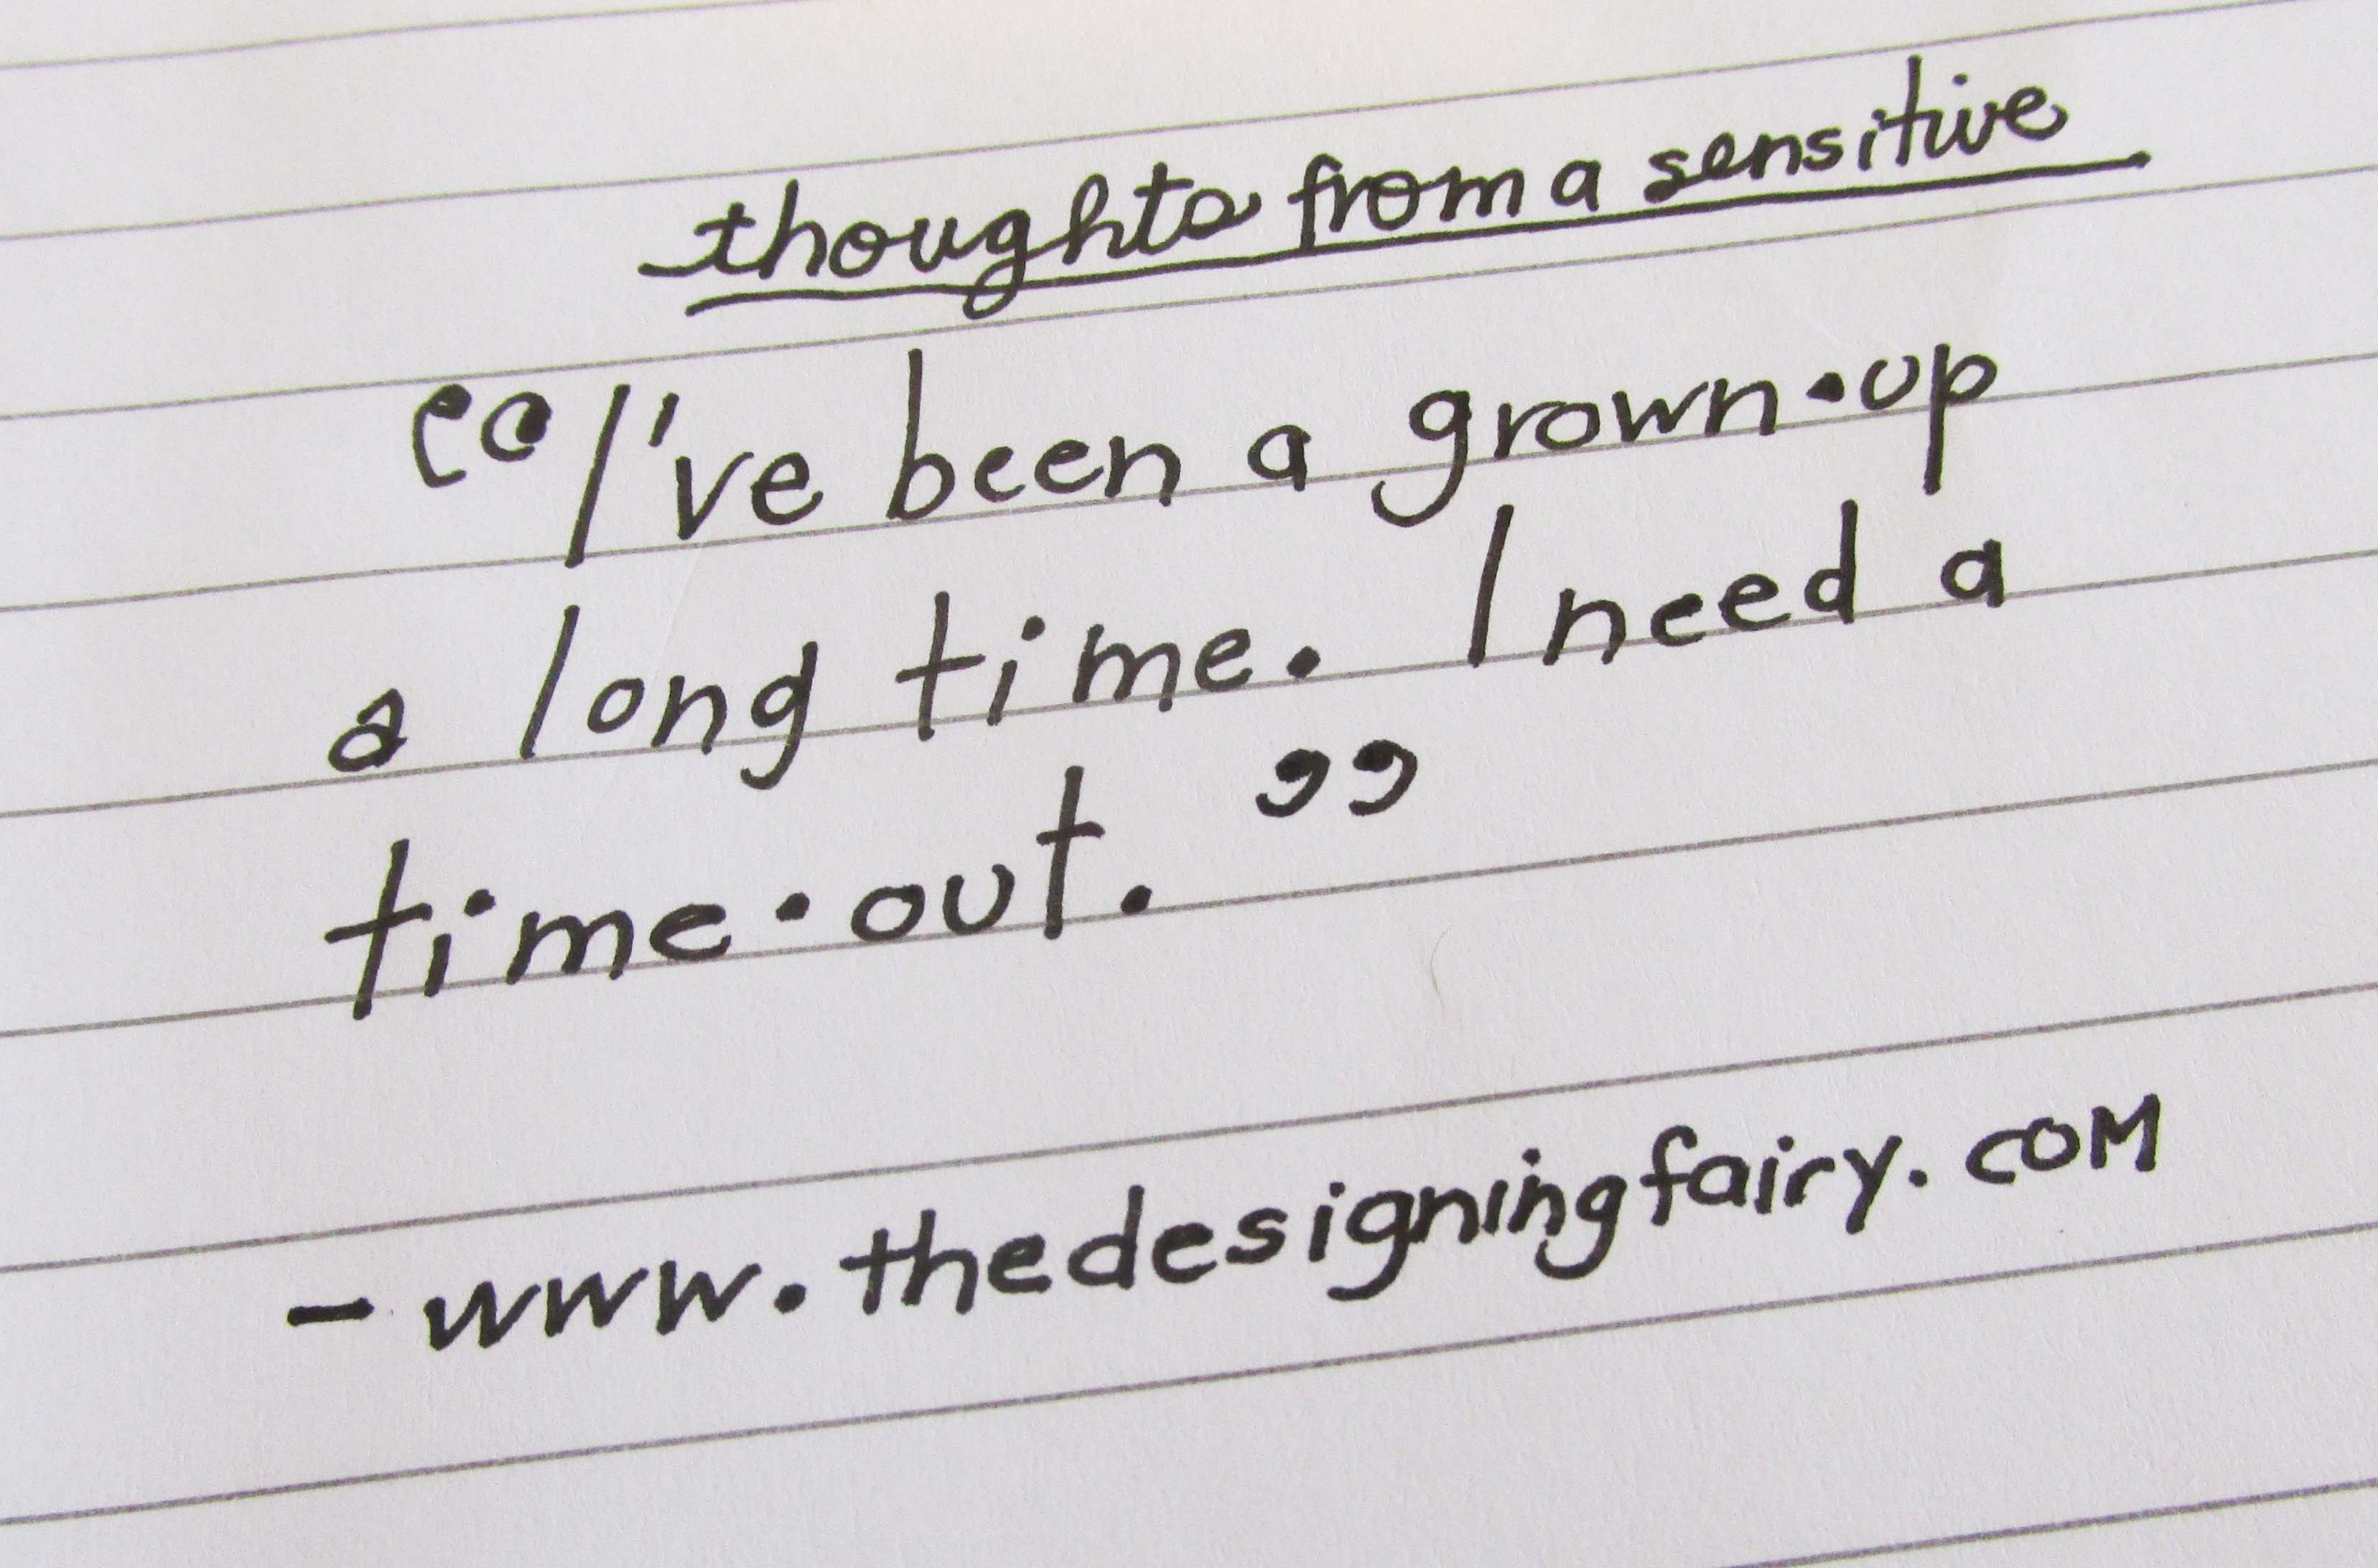 thoughts from a sensitive
“I've been a grown·up
a long time. I need a
time·out.”
- www.thedesigningfairy.com